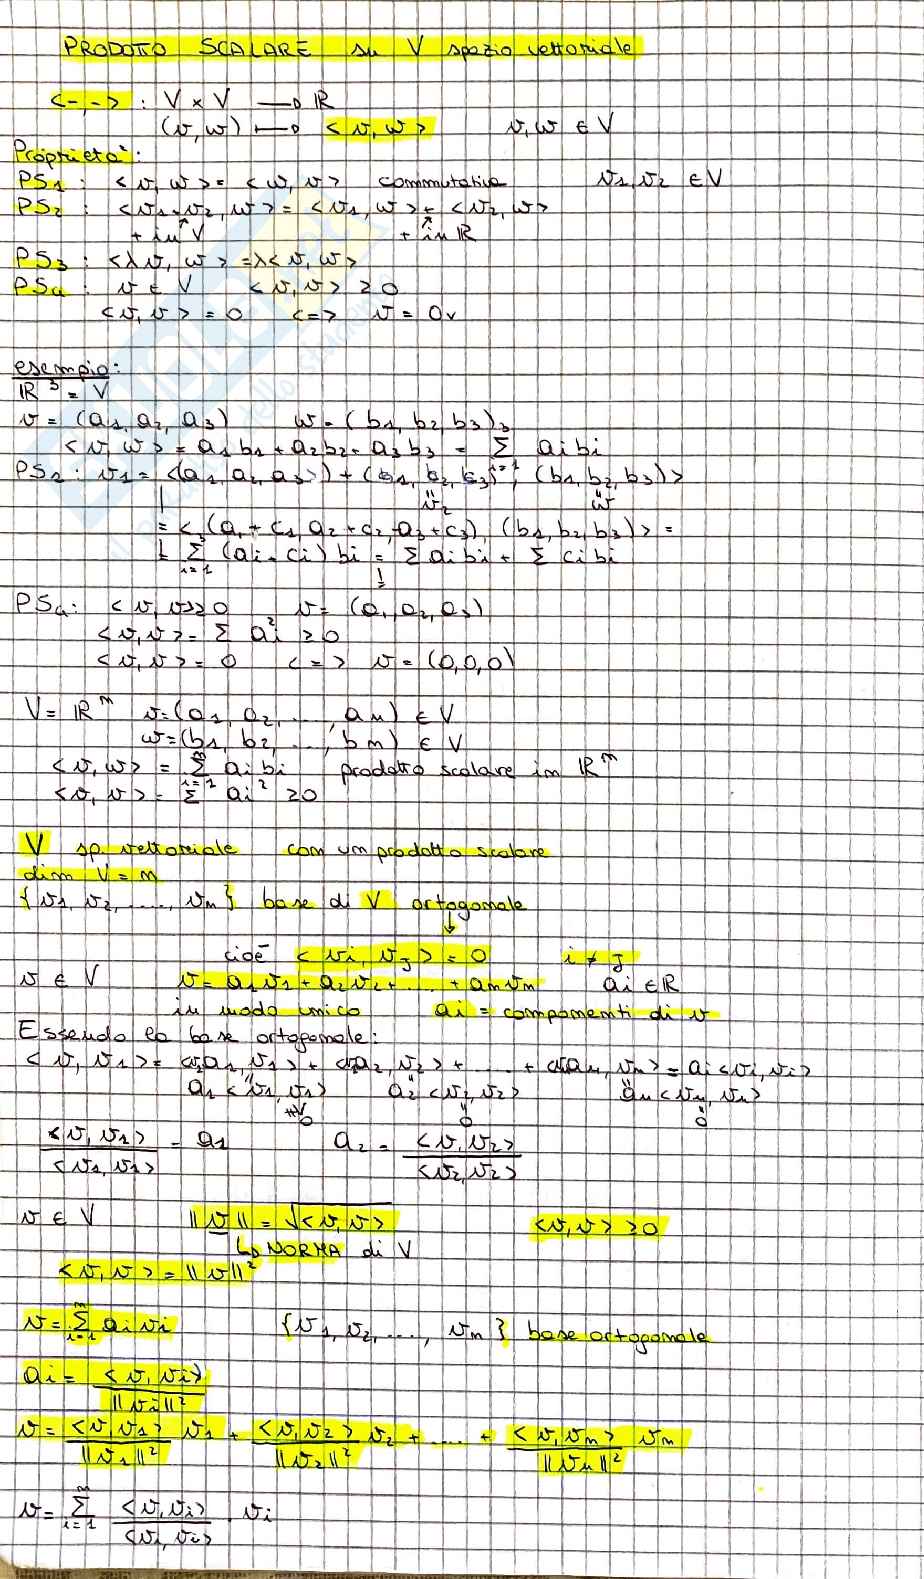 PRODOTTO SCALARE su V spazio vettoriale
<-,-> : V × V → ℝ
(v,w) ↦ <v,w> v,w ∈ V
Proprietà:
PS1 : <v,w> = <w,v> commutativa v1,v2 ∈ V
PS2 : <v1+v2,w> = <v1,w> + <v2,w>
+ in V + in ℝ
PS3 : <λv,w> = λ<v,w>
PS4 : v ∈ V <v,v> ≥ 0
<v,v> = 0 <=> v = 0v
esempio:
ℝ³ = V
v = (a1,a2,a3) w = (b1,b2,b3)
<v,w> = a1b1 + a2b2 + a3b3 = Σ³i=1 aibi
PS2 : v1 = <(a1,a2,a3) + (c1,c2,c3), (b1,b2,b3)>
v2 w
= <(a1+c1,a2+c2,a3+c3), (b1,b2,b3)> =
= Σ³i=1 (ai+ci)bi = Σ aibi + Σ cibi
PS4: <v,v> ≥ 0 v = (a1,a2,a3)
<v,v> = Σ ai² ≥ 0
<v,v> = 0 <=> v = (0,0,0)
V = ℝⁿ v = (a1,a2,...,an) ∈ V
w = (b1,b2,...,bn) ∈ V
<v,w> = Σⁿi=1 aibi prodotto scalare in ℝⁿ
<v,v> = Σ ai² ≥ 0
V sp. vettoriale con un prodotto scalare
dim V = n
{v1,v2,....,vn} base di V ortogonale
↓
cioè <vi,vj> = 0 i ≠ j
v ∈ V v = a1v1 + a2v2 + ... + anvn ai ∈ ℝ
in modo unico ai = componenti di v
Essendo la base ortogonale:
<v,v1> = <v1a1,v1> + <v2a2,v2> + .... + <vnan,vn> = ai<vi,vi>
a1<v1,v1> a2<v2,v2> an<vn,vn>
≠ 0 0 0
<v,v1>/<v1,v1> = a1 a2 = <v,v2>/<v2,v2>
v ∈ V ||v|| = √<v,v> <v,v> ≥ 0
↳ NORMA di V
<v,v> = ||v||²
v = Σⁿi=1 aivi {v1,v2,...,vn} base ortogonale
ai = <v,vi>/||vi||²
v = <v,v1>/||v1||² v1 + <v,v2>/||v2||² v2 + .... + <v,vn>/||vn||² vn
v = Σⁿi=1 <v,vi>/<vi,vi> · vi